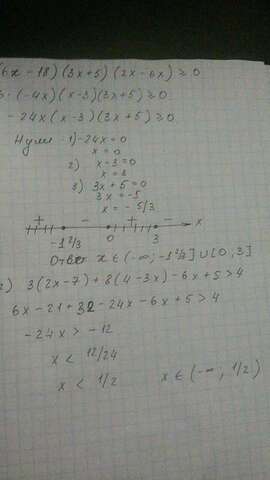 6x - 18) (3x + 5) (2x - 6x) ≥ 0
6 · (-4x) (x - 3) (3x + 5) ≥ 0
-24x (x - 3) (3x + 5) ≥ 0
Нули - 1) -24x = 0
x = 0
2) x - 3 = 0
x = 3
3) 3x + 5 = 0
3x = -5
x = -5/3
+ - + - x
-1 2/3 0 3
Ответ x ∈ (-∞; -1 2/3] ∪ [0, 3]
2) 3(2x - 7) + 8(4 - 3x) - 6x + 5 > 4
6x - 21 + 32 - 24x - 6x + 5 > 4
-24x > -12
x < 12/24
x < 1/2 x ∈ (-∞; 1/2)